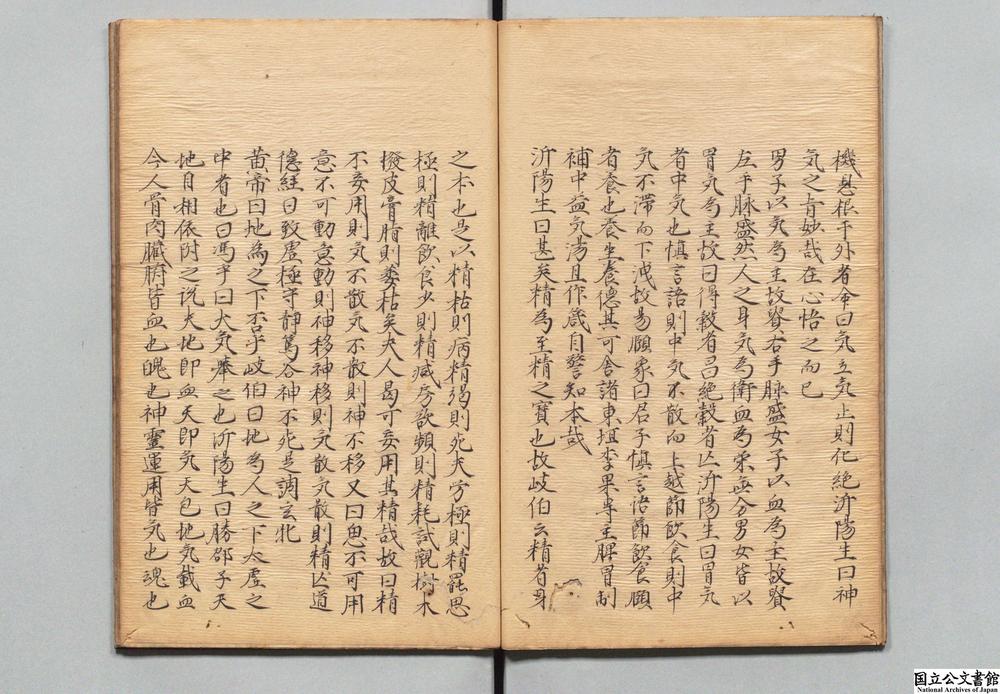 機息根于外者命曰気立気止則化絶沂陽生曰神
気之旨妙哉在心悟之而已
男子以気為主故賢右手脉盛女子以血為主故賢
左手脉盛然人之身気為衛血為栄無分男女皆以
胃気為主故曰得穀者昌絶穀者亡沂陽生曰胃気
者中気也慎言語則中気不散而上越節飲食則中
気不滞而下洩故易頤象曰君子慎言語節飲食頤
者養也養生養徳其可舎諸東垣李杲専主脾胃制
補中益気湯且作箴自警知本哉
沂陽生曰甚矣精為至精之寶也故岐伯云精者身
之本也是以精枯則病精竭則死夫労極則精罷思
極則精離飲食少則精减房欲頻則精耗試觀樹木
撥皮膏脂則萎枯矣夫人曷可妄用其精哉故曰精
不妄用則気不散気不散則神不移又曰思不可用
意不可動意動則神移神移則気散気散則精亡道
徳経曰致虚極守静篤谷神不死是謂玄牝
黄帝曰地為之下否乎岐伯曰地為人之下太虚之
中者也曰馮乎曰大気舉之也沂陽生曰勝邵子天
地自相依附之説夫地即血天即気天包地気載血
今人骨肉臓腑皆血也魄也神靈運用皆気也魂也
国立公文書館
National Archives of Japan